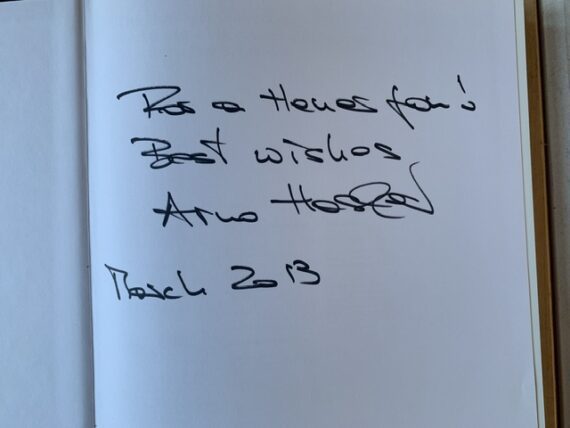 For a Heuer fan!
Best wishes
Arno
March 2013